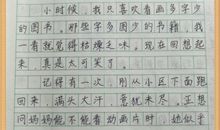 小时候，我只喜欢看画多字少
的图书。那些字多图少的书籍，我
一看就觉得枯燥乏味。现在回想起
来，真是太可笑了。
记得有一次，刚从小区下面跑
回来，满头大汗，意犹未尽。正想
问妈妈能不能看动画片时，她似乎